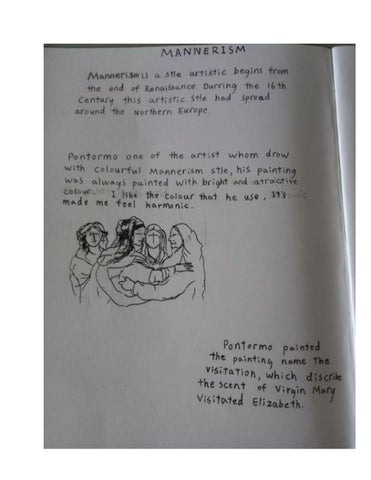 MANNERISM
Mannerism is a stle artistic begins from
the end of Renaissance. Durring the 16th
Century this artistic stle had spread
around the Northern Europe.
Pontormo one of the artist whom drow
with colourful Mannerism stle, his painting
was always painted with bright and atractive
colour. I like the colour that he use, it's
made me feel harmonic.
Pontormo painted
the painting name The
visitation, which discribe
the scent of Virgin Mary
Visitated Elizabeth.